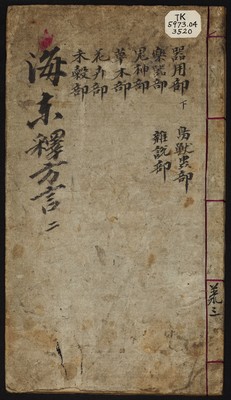 TK
5973.04
3520
器用部 下
樂器部
鬼神部
草木部
花卉部
禾穀部
鳥獸虫部
雜說部
海東釋方言 二